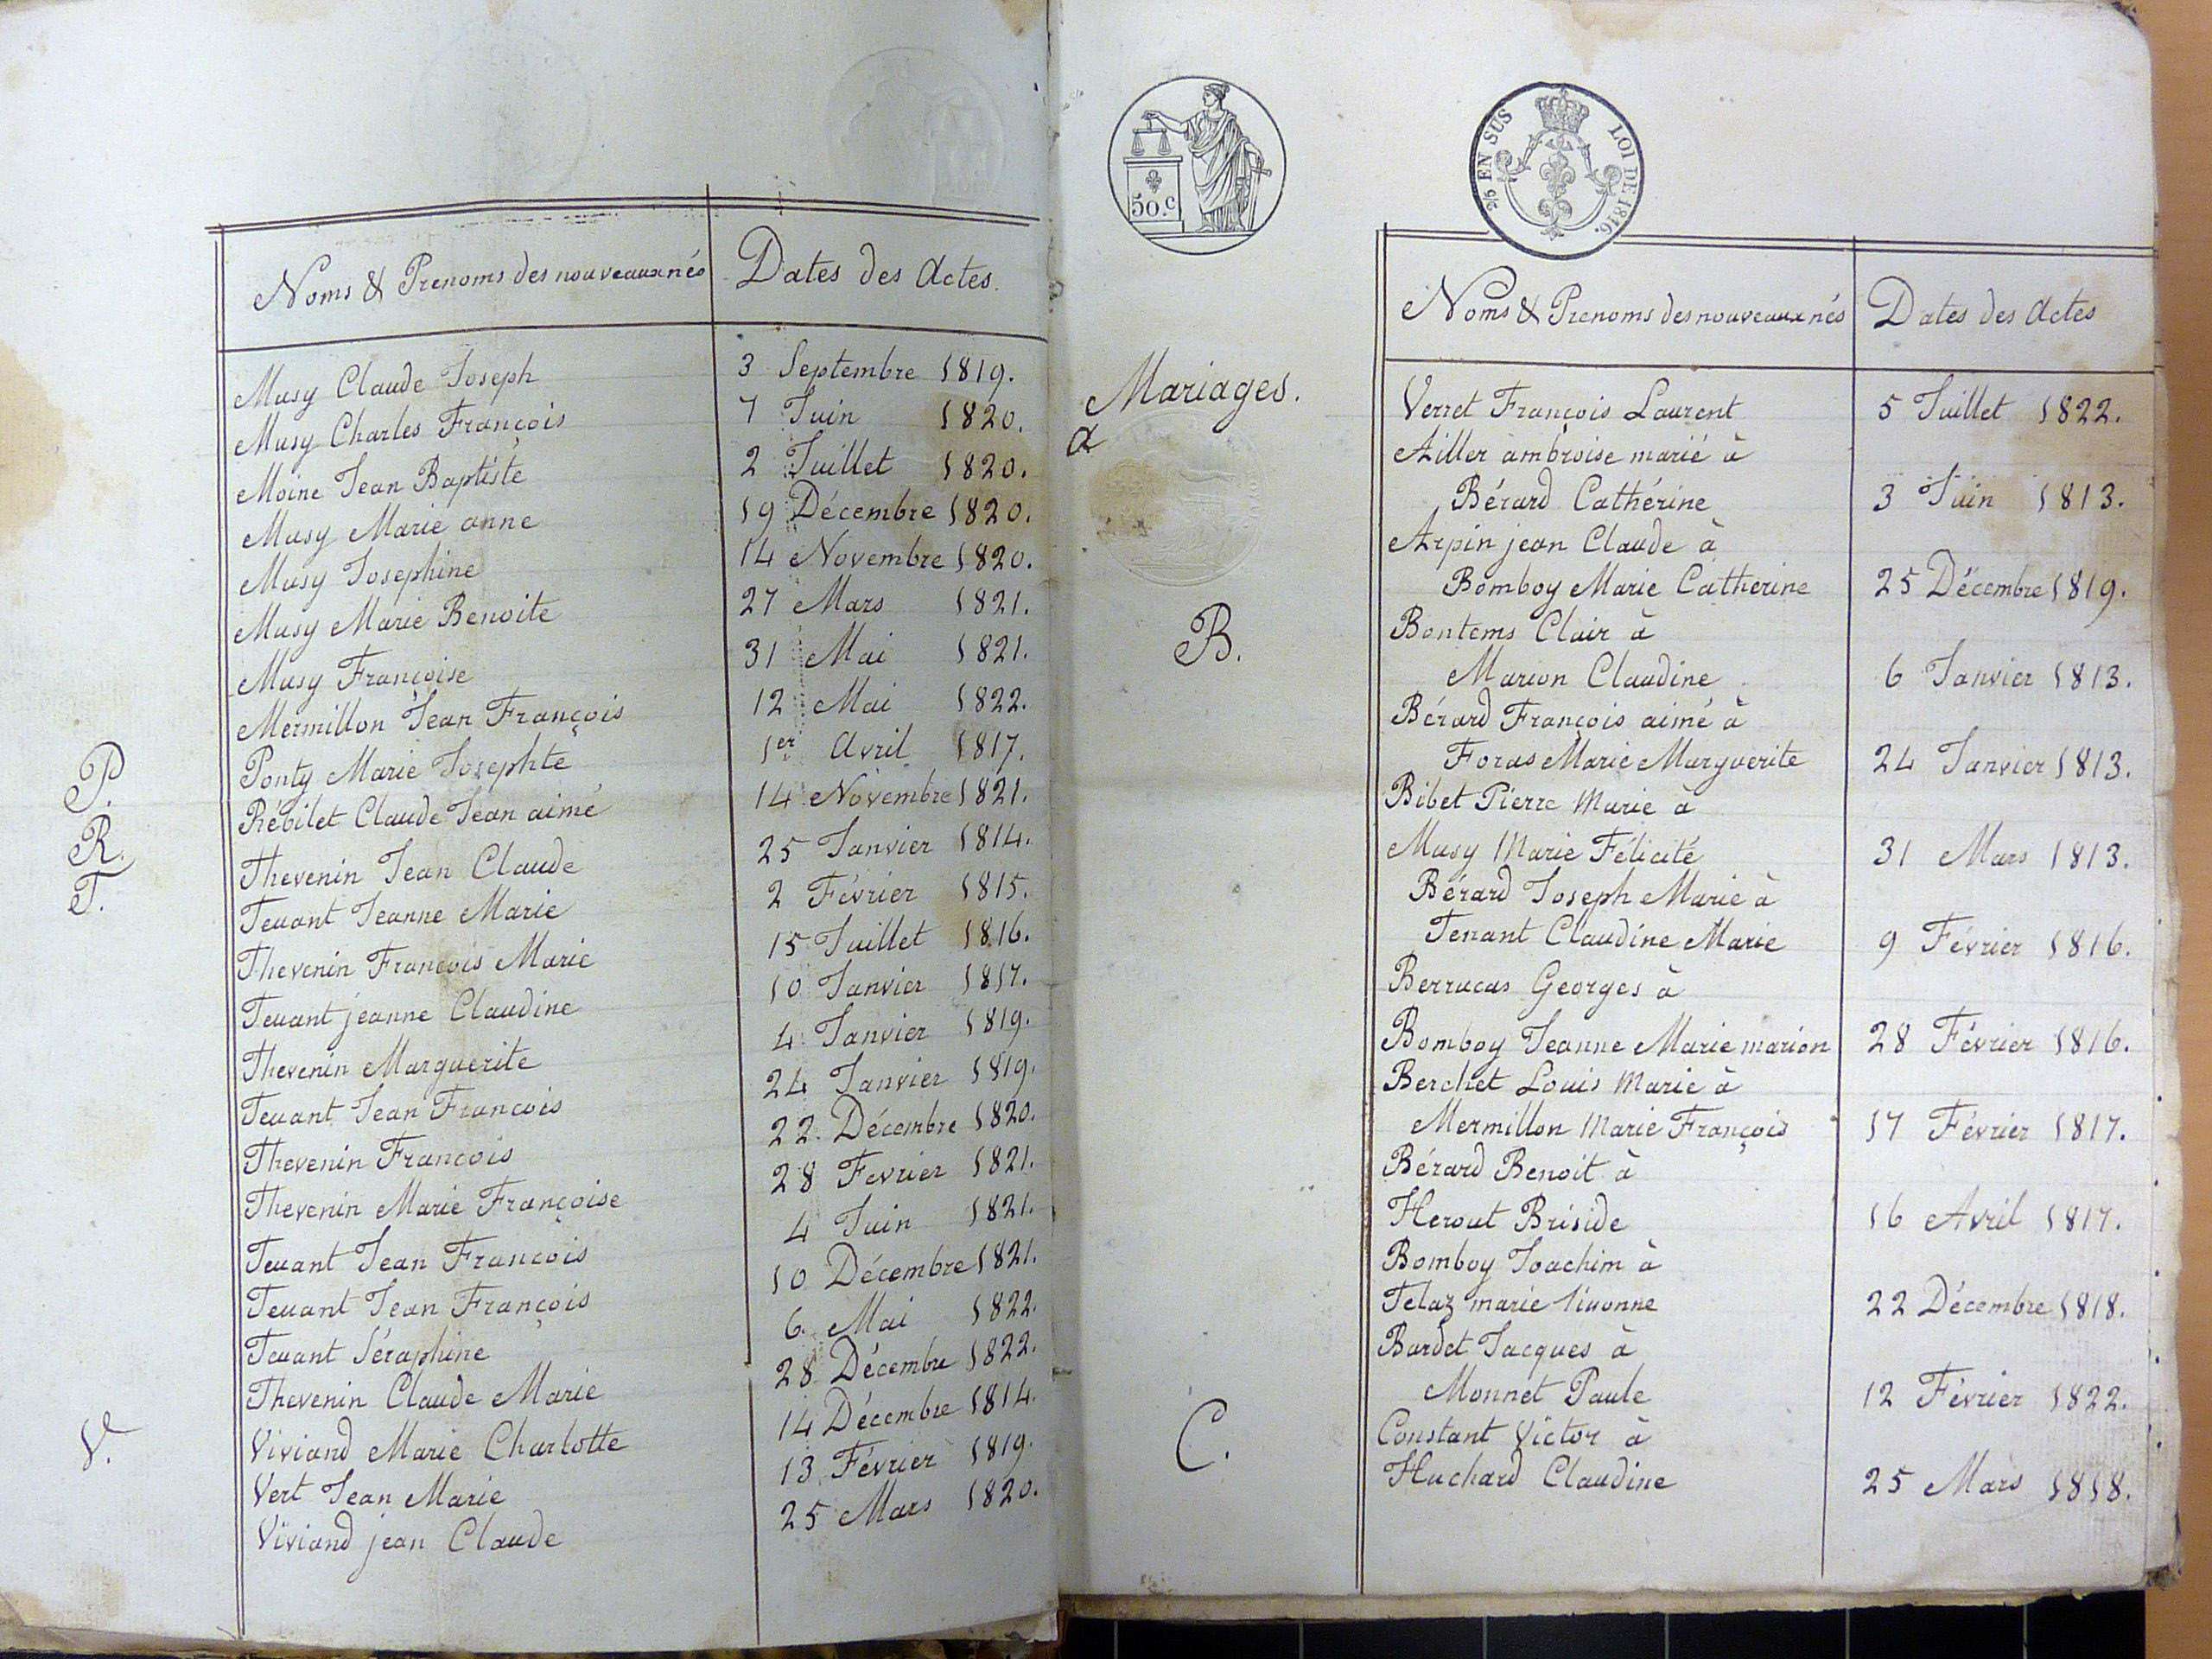 Noms & Prenoms des nouveaux nés Dates des Actes.
Musy Claude Joseph 3 Septembre 1819.
Musy Charles François 7 Juin 1820.
Moine Jean Baptiste 2 Juillet 1820.
Musy Marie anne 19 Décembre 1820.
Musy Josephine 14 Novembre 1820.
Musy Marie Benoite 27 Mars 1821.
Musy Françoise 31 Mai 1821.
Mermillon Jean François 12 Mai 1822.
P. Ponty Marie Josephte 1er Avril 1817.
R. Rébilet Claude Jean aimé 14 Novembre 1821.
T. Thevenin Jean Claude 25 Janvier 1814.
Tenant Jeanne Marie 2 Février 1815.
Thevenin François Marie 15 Juillet 1816.
Tenant jeanne Claudine 10 Janvier 1817.
Thevenin Marguerite 4 Janvier 1819.
Tenant Jean François 24 Janvier 1819.
Thevenin François 22 Décembre 1820.
Thevenin Marie Françoise 28 Fevrier 1821.
Tenant Jean François 4 Juin 1821.
Tenant Jean François 10 Décembre 1821.
Tenant Séraphine 6 Mai 1822.
Thevenin Claude Marie 28 Décembre 1822.
V. Viviand Marie Charlotte 14 Décembre 1814.
Vert Jean Marie 13 Février 1819.
Viviand jean Claude 25 Mars 1820.
50.c
2/5 EN SUS LOI DE 1816.
Noms & Prenoms des nouveaux nés Dates des Actes
Verret François Laurent 5 Juillet 1822.
Mariages.
A Ailler ambroise marié à
Bérard Cathérine 3 Juin 1813.
Arpin jean Claude à
Bomboy Marie Catherine 25 Décembre 1819.
B. Bontems Clair à
Marion Claudine 6 Janvier 1813.
Bérard François aimé à
Foras Marie Marguerite 24 Janvier 1813.
Bibet Pierre Marie à
Musy Marie Félicité 31 Mars 1813.
Bérard Joseph Marie à
Tenant Claudine Marie 9 Février 1816.
Berrucas Georges à
Bomboy Jeanne Marie marion 28 Février 1816.
Berchet Louis Marie à
Mermillon Marie François 17 Février 1817.
Bérard Benoit à
Herout Briside 16 Avril 1817.
Bomboy Joachim à
Telaz marie 22 Décembre 1818.
Bardet Jacques à
Monnet Paule 12 Février 1822.
C. Constant Victor à
Huchard Claudine 25 Mars 1818.